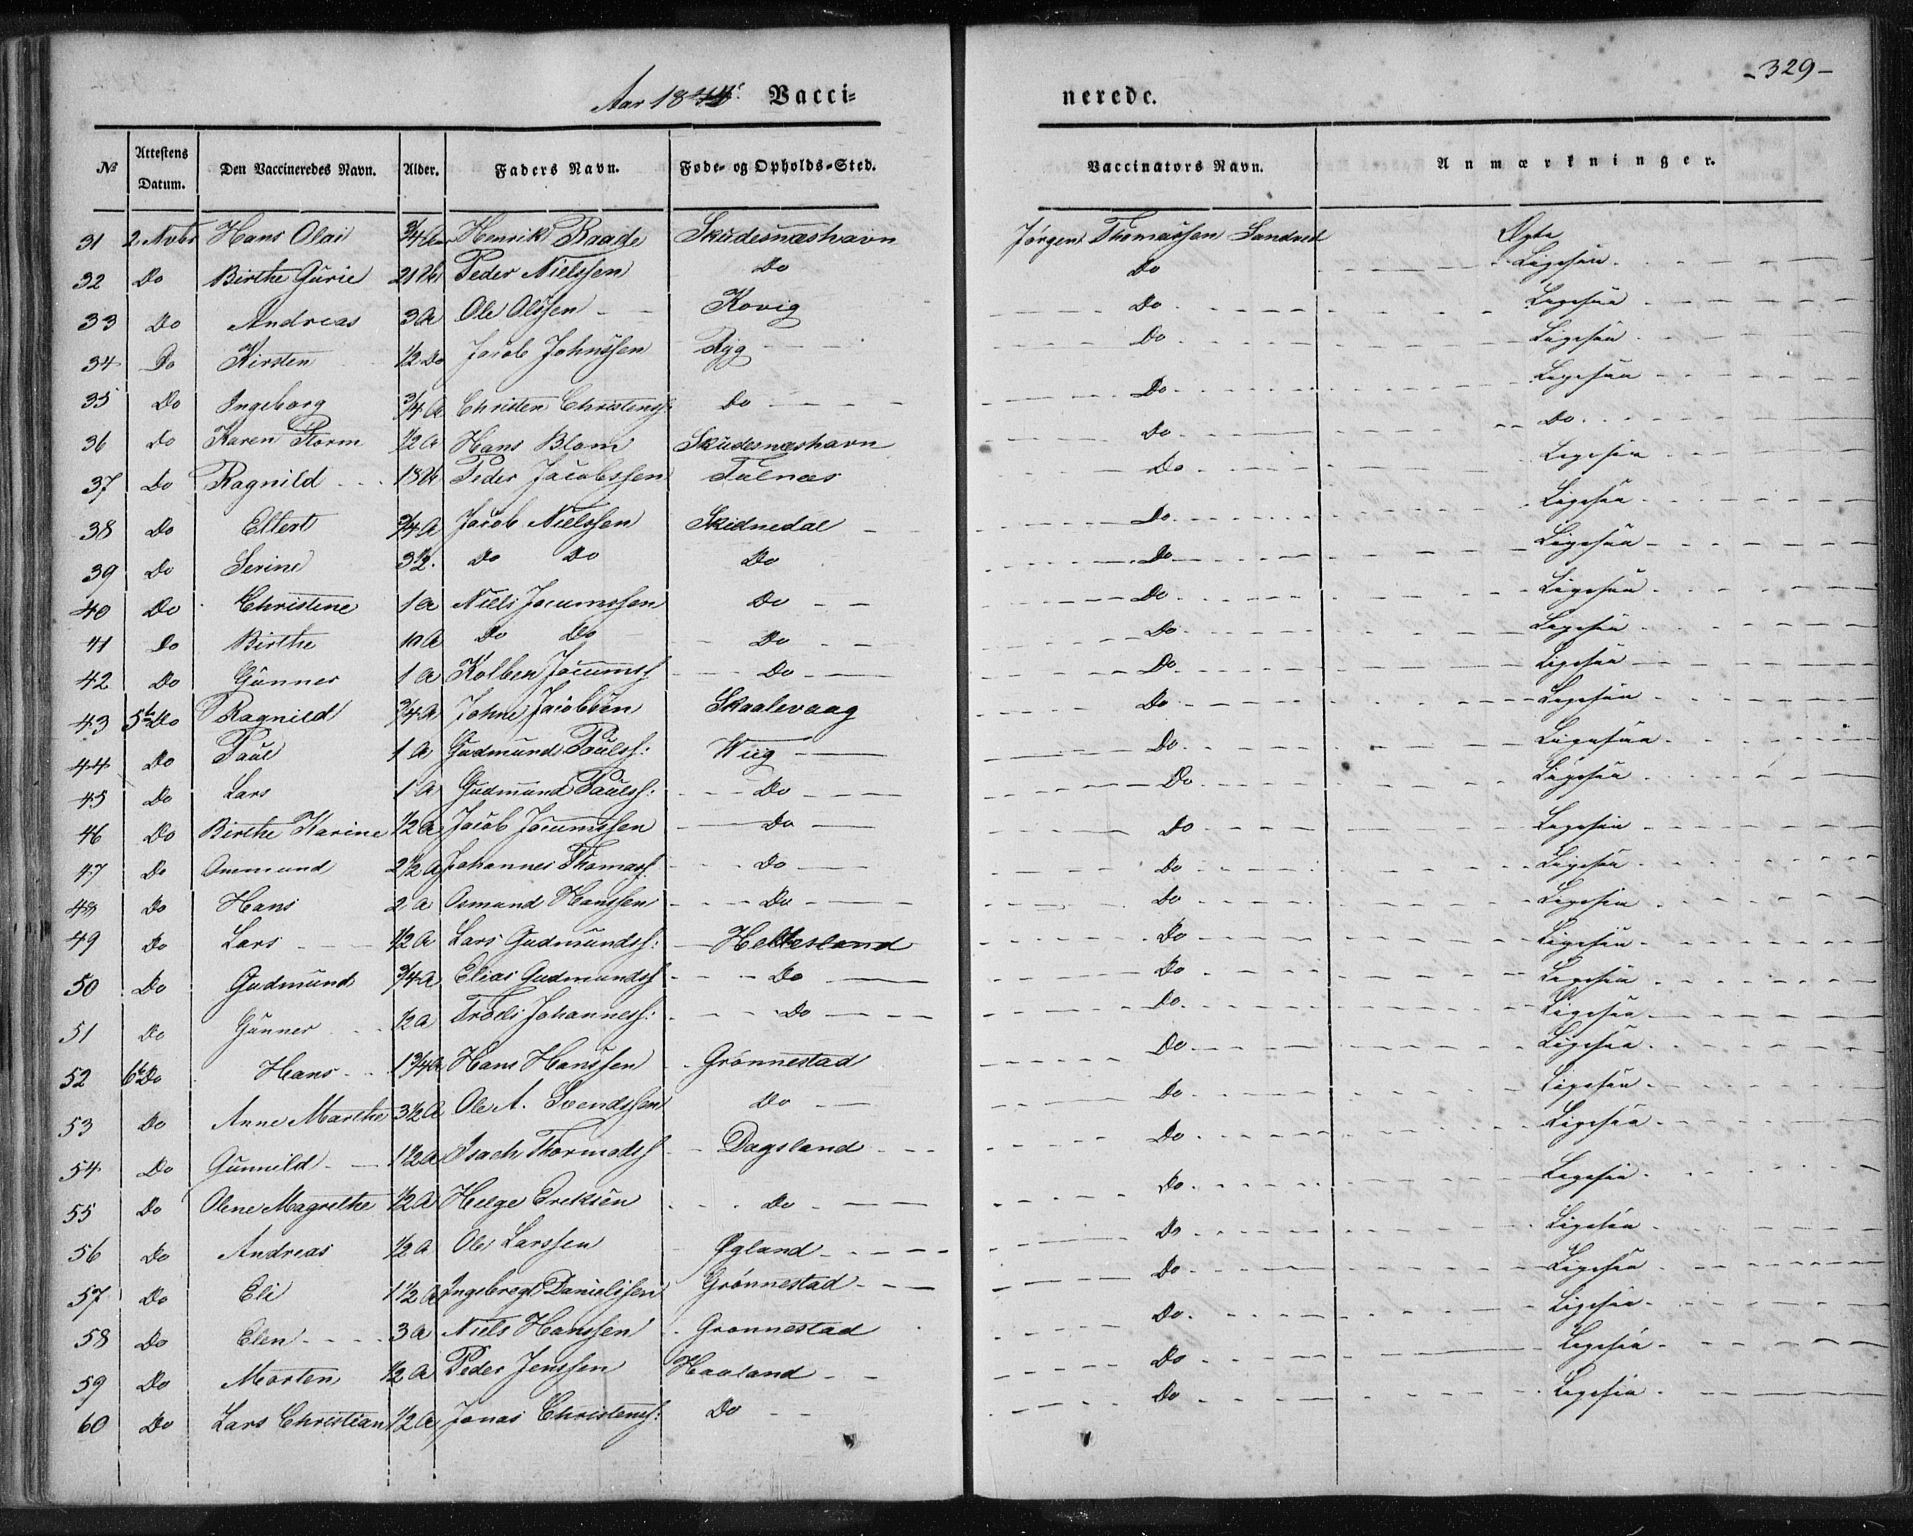 Aar 1844. Vacci=
nerede.
-329-
№ Attestens Datum. Den Vaccineredes Navn. Alder. Faders Navn. Føde- og Opholds-Sted. Vaccinators Navn. Anmærkninger.
31 2 Nvbr Hans Olai 3/4 Henrik Raade Skudesnæshavn Jørgen Thomassen Sandved Ægte
32 Do Birthe Gurie Peder Nielssen Do Do Ligesaa
33 Do Andreas 3 A Ole Olssen Do Ligesaa
34 Do Kirsten 1/2 Do Jacob Johnssen Do Ligesaa
35 Do Ingeborg 3/4 A Christen Christenss Do Do Ligesaa
36 Do Karen Storm 1/2 A Hans Blom Skudesnæshavn Do Do
37 Do Ragnild Peder Jacobssen Falnæs Do Ligesaa
38 Do Ellert 3/4 A Jacob Nielssen Skidnedal Do Ligesaa
39 Do Serine 3 1/2 Do Do Do Do Ligesaa
40 Do Christene 1 A Niels Jocumssen Do Do Ligesaa
41 Do Birthe 10 A Do Do Do Do Ligesaa
42 Do Gunner 1 A Kolben Jocumss Do Do Ligesaa
43 5te Do Ragnild 3/4 A Johne Jacobsen Skaalevaag Do Ligesaa
44 Do Paul 1 A Gudmund Paulss: Wiig Do Ligesaa
45 Do Lars 1 A Gudmund Paulss: Do Do Ligesaa
46 Do Birthe Karine 1/2 A Jacob Jocumssen Do Do Ligesaa
47 Do Ommund 2 1/2 A Johannes Thomass Do Do Ligesaa
48 Do Hans 2 A Osmund Hanssen Do Do Ligesaa
49 Do Lars 1/2 A Lars Gudmundss: Heltesland Do Ligesaa
50 Do Gudmund 3/4 A Elias Gudmundss Do Do Ligesaa
51 Do Gunner 1/2 A Johanness: Do Do Ligesaa
52 6te Do Hans 1 3/4 A Hans Hanssen Grønnestad Do Ligesaa
53 Do Anne Marthe 3 1/2 A Ole A. Svendssen Do Do Ligesaa
54 Do Gunnild 1 1/2 A Isach Thormodss Dagsland Do Ligesaa
55 Do Olene Magrethe 1/2 A Helge Eriksen Do Do Ligesaa
56 Do Andreas 1/2 A Ole Larssen Øgland Do Ligesaa
57 Do Eli 1 1/2 A Ingebregt Danielssen Grønnestad Do Ligesaa
58 Do Elen 3 A Niels Hanssen Grønnestad Do Ligesaa
59 Do Morten 1/2 A Peder Jenssen Haaland Do Ligesaa
60 Do Lars Christian 1/2 A Jonas Christenss: Do Do Ligesaa